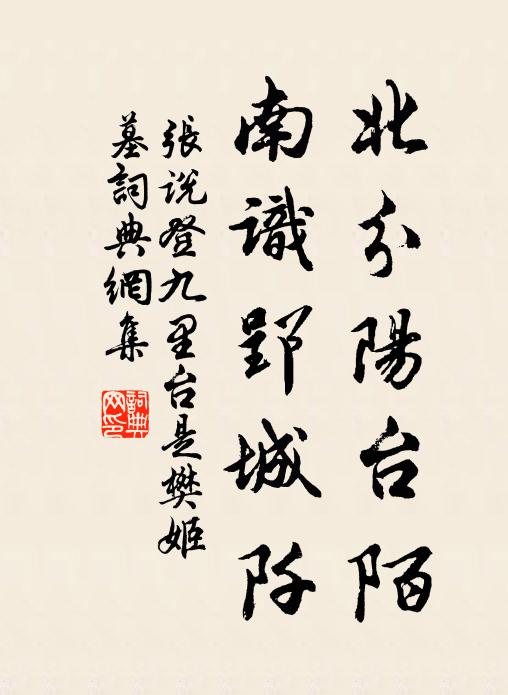 北分陽台陌
南識郢城阡
張说登九里台是樊姬
墓詞典網集
詞典
网印